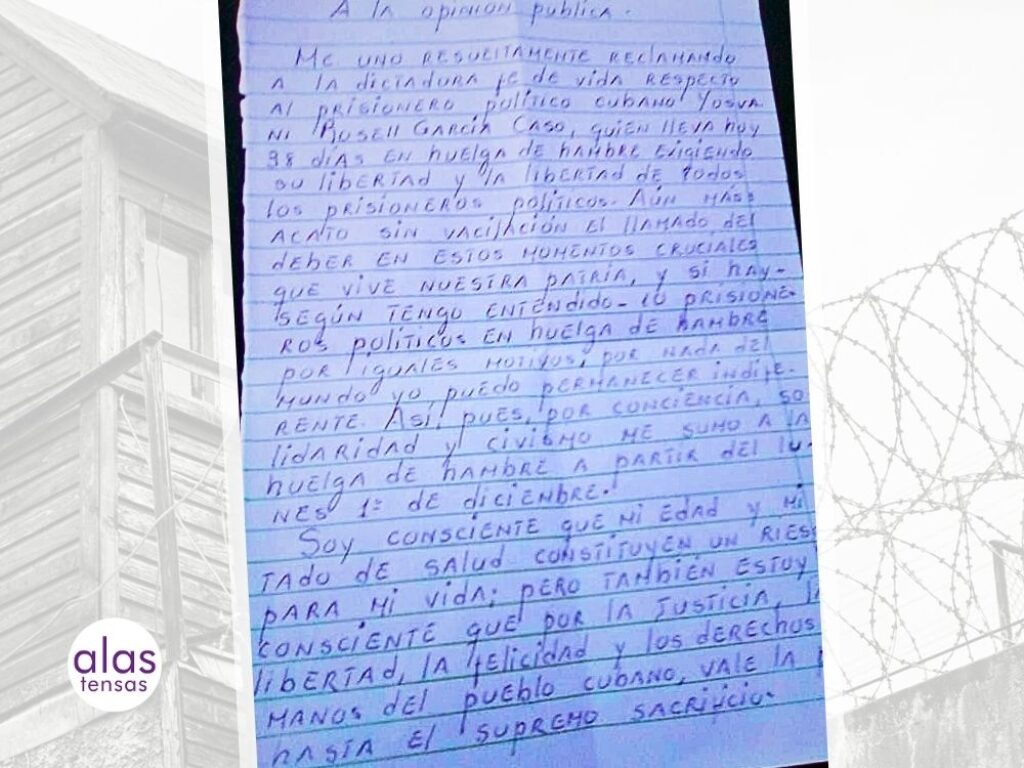 A la opinión pública.
Me uno resueltamente reclamando
a la dictadura fe de vida respecto
al prisionero político cubano Yosva
ni Rosell García Caso, quien lleva hoy
38 días en huelga de hambre exigiendo
su libertad y la libertad de todos
los prisioneros políticos. Aún más:
acato sin vacilación el llamado del
deber en estos momentos cruciales
que vive nuestra patria, y si hay-
según tengo entendido- 10 prisione-
ros políticos en huelga de hambre
por iguales motivos, por nada del
mundo yo puedo permanecer indife-
rente. Así, pues, por conciencia, so
lidaridad y civismo me sumo a la
huelga de hambre a partir del lu-
nes 1º de diciembre.
Soy consciente que mi edad y mi
tado de salud constituyen un ries
para mi vida; pero también estoy
consciente que por la justicia, l
libertad, la felicidad y los derechos
manos del pueblo cubano, vale la
hasta el supremo sacrificio.
alas
tensas